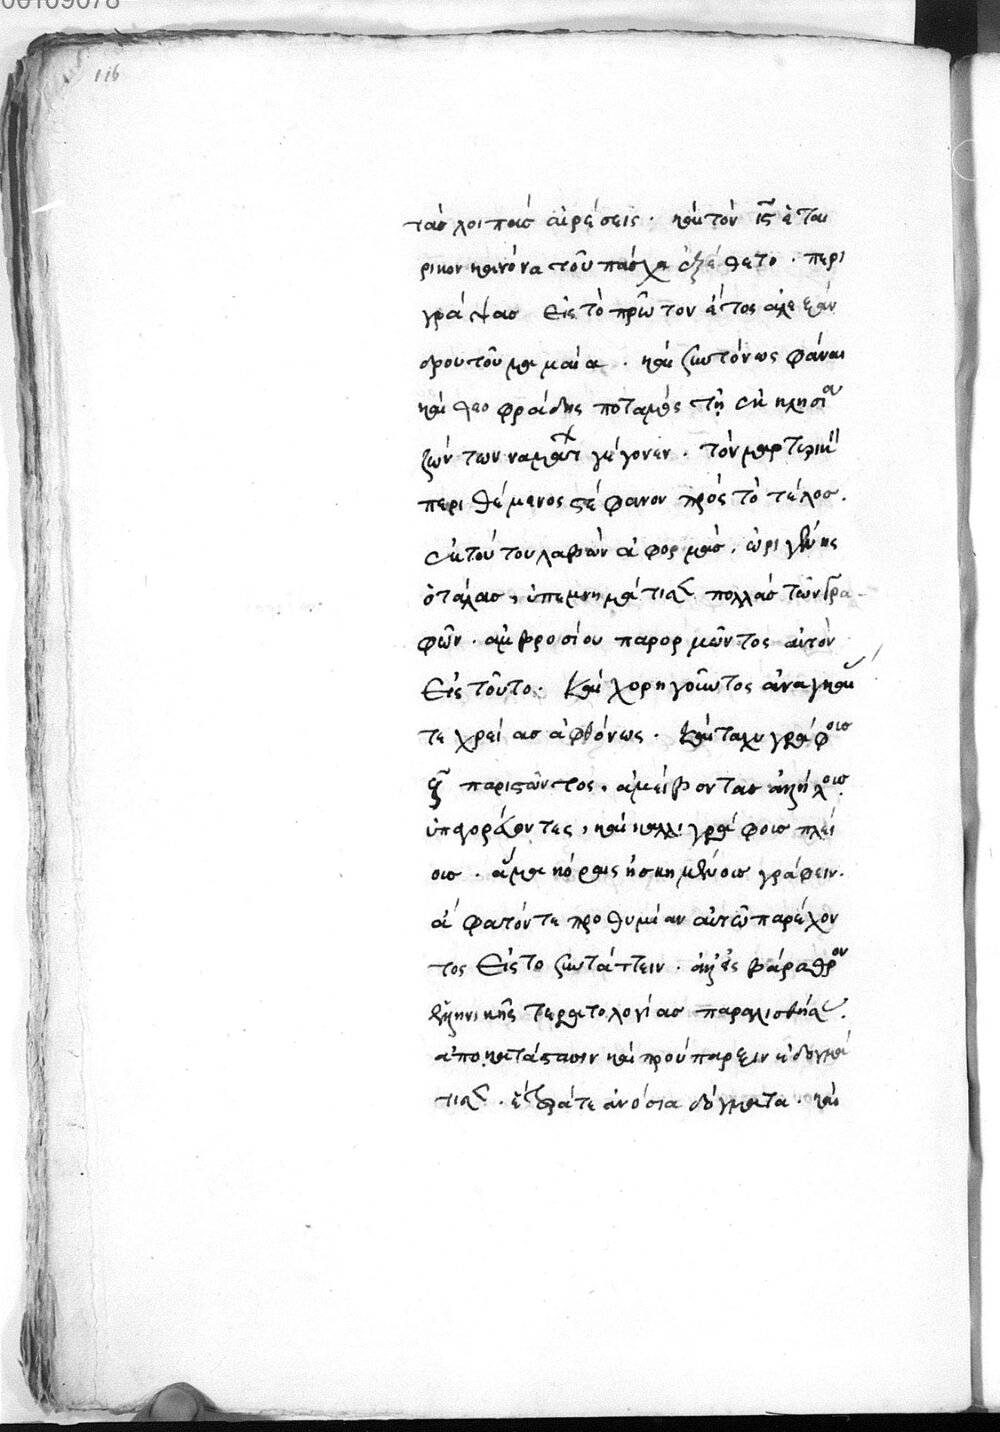 00109078
116
τὰς λοιπὰς αἱρέσεις · καὶ τὸν ιϛ ἑται
ρικον κανόνα τοῦ πάσχα ἐξέθετο · περι
γράψας εἰς τὸ πρῶτον ἔτος ἀλεξάν
δρου τοῦ μαμαία · καὶ ζωτόνως φάναι
καὶ θεοφραδὴς ποταμὸς τῇ ἐκκλησίᾳ
ζώντων ναμάτων γέγονεν · τὸν μαρτυρικὸν
περιθέμενος στέφανον πρὸς τὸ τέλος.
ἐκ τούτου λαβὼν ἀφορμὰς, ὠριγένης
ὁ τάλας, ὑπεμνημάτισε πολλὰς τῶν γρα
φῶν · ἀμβροσίου παρορμῶντος αὐτὸν
εἰς τοῦτο · καὶ χορηγοῦντος ἀναγκαί
τε χρείας ἀφθόνως · καὶ ταχυγράφοις
παριστῶντος, ἀμείβοντας ἀλλήλοις
ὑπαγοράζοντες, καὶ καλλιγράφοις πλεί
οις · ἅμα κόραις ἠσκημέναις γράφειν ·
ἄφατόν τε προθυμίαν αὐτῷ παρέχον
τος εἰς τὸ ζωτάττειν · ἀλλ' εἰς βάραθρον
ἑλληνικῆς τερατολογίας παραλισθήσας ·
ἀποκατάστασιν καὶ προύπαρξιν ἐδογμά
τισε · ἕτερά τε ἀνόσια δόγματα · καὶ